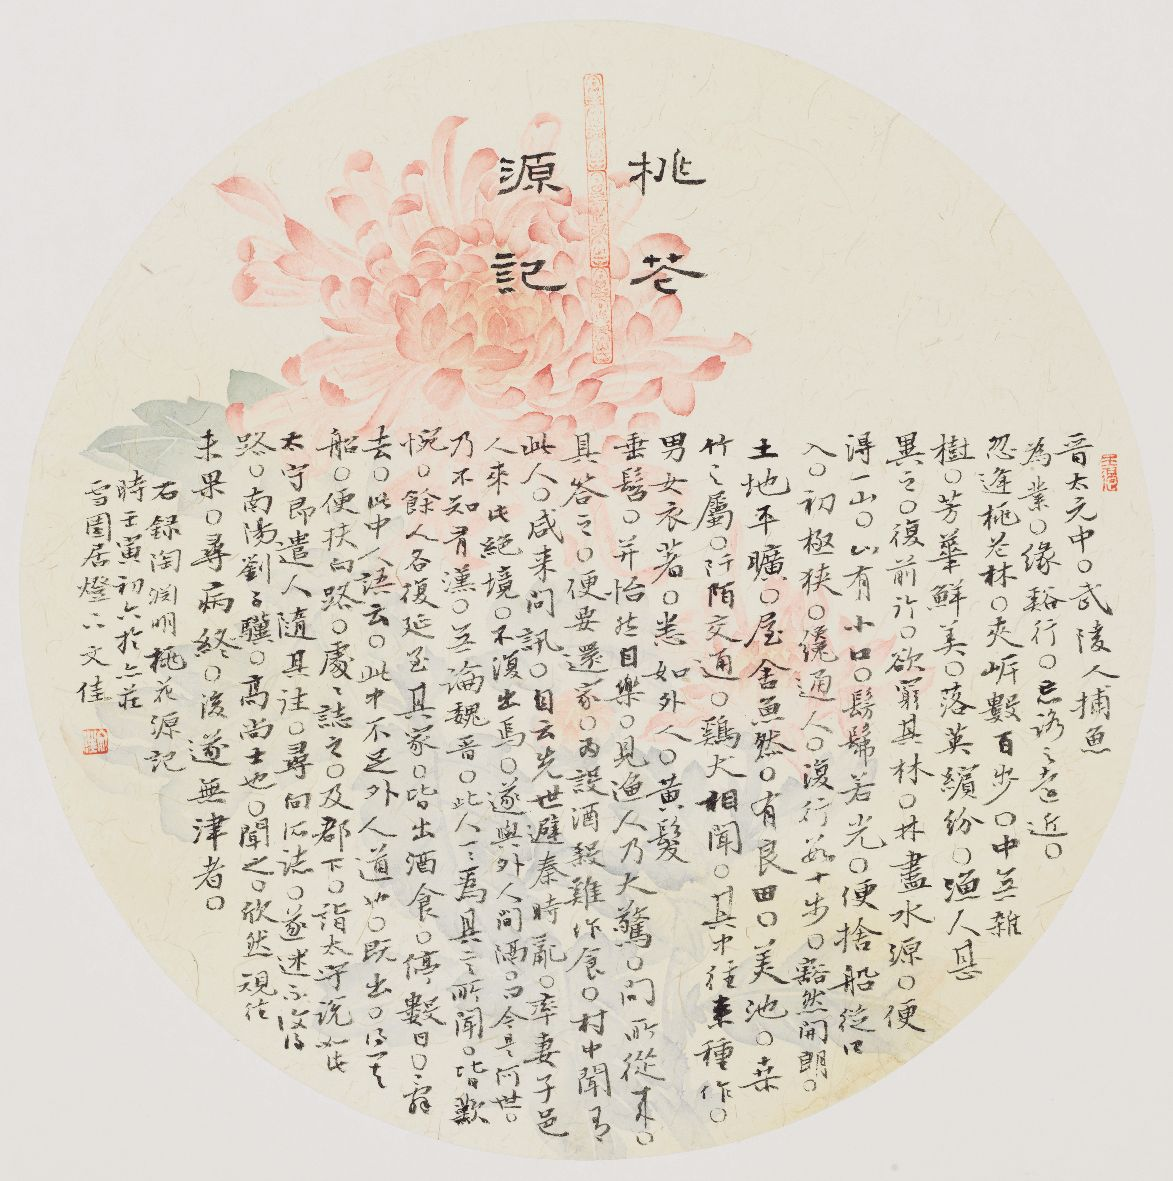 桃芲
源記
晉太元中○武陵人捕魚
為業○緣谿行○忘路之遠近○
忽逢桃芲林○夾岍數百步○中無雜
樹○芳華鮮美○落英繽紛○漁人甚
異之○復前行○欲窮其林○林盡水源○便
得一山○山有小口○髣髴若光○便捨船從口
入○初極狹○纔通人○復行數十步○豁然開朗○
土地平曠○屋舍儼然○有良田○美池○桑
竹之屬○阡陌交通○鷄犬相聞○其中往來種作○
男女衣著○悉如外人○黃髮
垂髫○并怡然自樂○見漁人乃大驚○問所從来○
具答之○便要還家○為設酒殺雞作食○村中聞有
此人○咸来問訊○自云先世避秦時亂○率妻子邑
人來此絕境○不復出焉○遂與外人間隔○問今是何世○
乃不知有漢○無論魏晉○此人一一為具言所聞○皆歎
惋○餘人各復延至其家○皆出酒食○停數日○辭
去○此中人語云○此中不足外人道也○既出○得其
船○便扶向路○處處誌之○及郡下○詣太守說如此
太守即遣人隨其往○尋向所誌○遂迷不復得
路○南陽劉子驥○高尚士也○聞之○欣然規往
未果○尋病終○後遂無津者○
右録陶渊明桃花源記
時壬寅初六於
雪園居燈下文佳